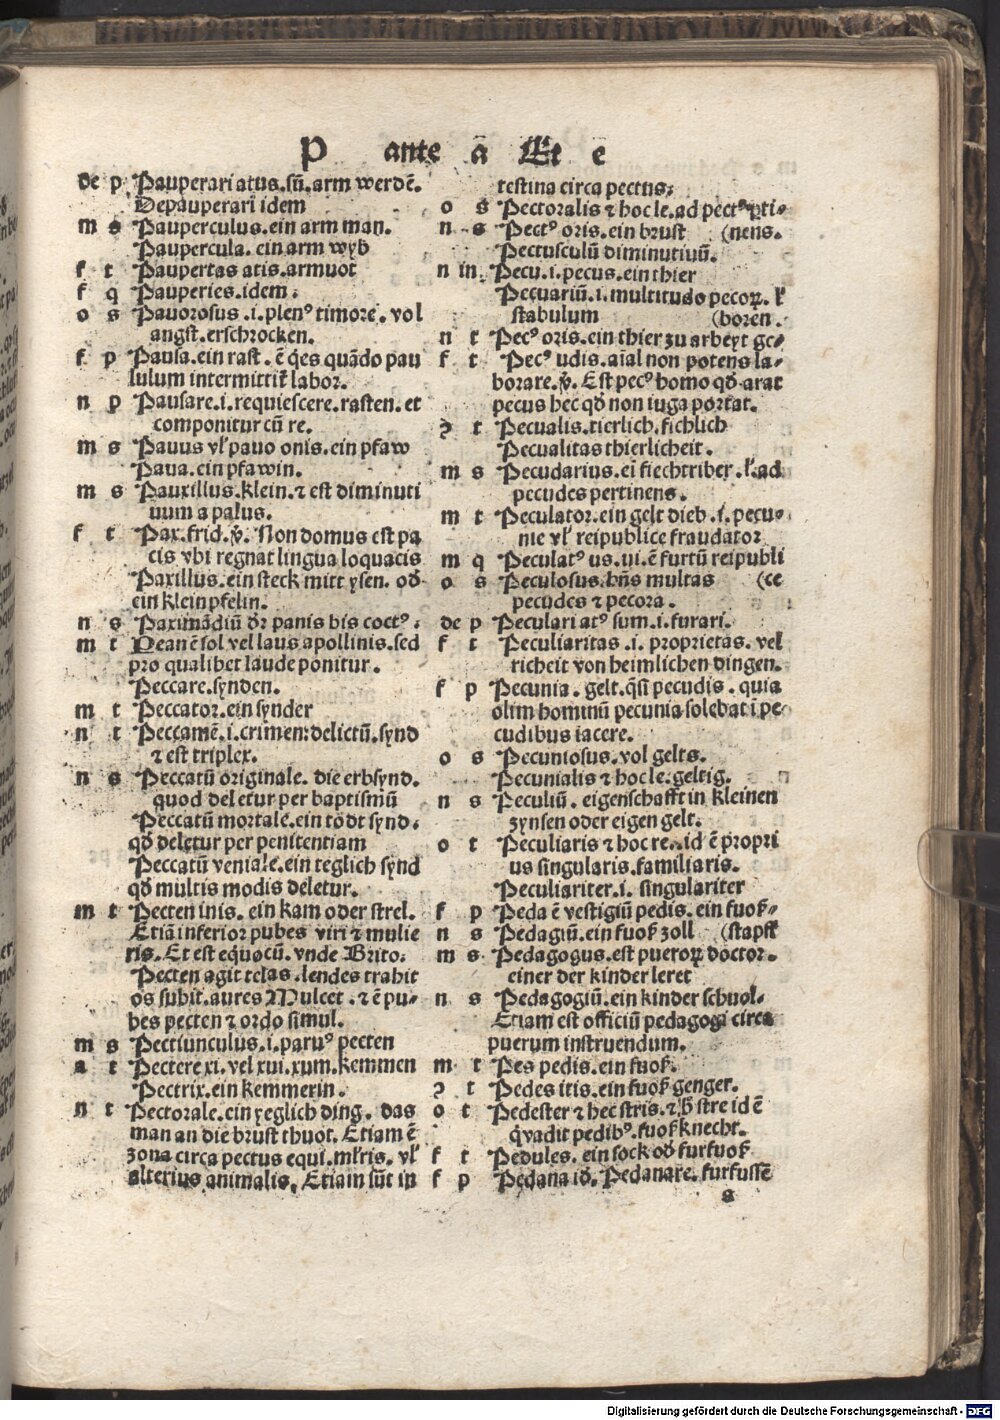 P ante ā Et e
de p Pauperari atus.sū.arm werdē.
Depauperari idem
m s Pauperculus.ein arm man.
Paupercula.ein arm wyb
f t Paupertas atis.armuot
f q Pauperies.idem.
o s Pauorosus.i.plenꝰ timore.vol
angst.erschrocken.
f p Pausa.ein rast.ē q̄es quādo pau
lulum intermittit labor.
n p Pausare.i.requiescere.rasten.et
componitur cū re.
m s Pauus vl' pauo onis.ein pfaw
Paua.ein pfawin.
m s Pauxillus.klein.⁊ est diminuti
uum a palus.
f t Pax.frid.v̄. Non domus est pa
cis vbi regnat lingua loquacis
Paxillus.ein steck mitt ysen.od
ein klein pfelin.
n s Paximādiū dr panis bis coctꝰ.
m t Pean ē sol vel laus apollinis.sed
pro qualibet laude ponitur.
Peccare.synden.
m t Peccator.ein synder
n t Peccamē.i.crimen:delictū.synd
⁊ est triplex.
n s Peccatū originale.die erbsynd.
quod deletur per baptismū
Peccatū mortale.ein tödt synd.
qđ deletur per penitentiam
Peccatū veniale.ein teglich synd
qđ multis modis deletur.
m t Pecten inis.ein kam oder strel.
Etiā inferior pubes viri ⁊ mulie
ris.Et est equocū.vnde Brito.
Pecten agit telas.lendes trahit
os subit.aures Mulcet.⁊ ē pu-
bes pecten ⁊ ordo simul.
m s Pectiunculus.i.paruꝰ pecten
a t Pectere xi.vel xui.xum.kemmen
Pectrix.ein kemmerin.
n t Pectorale.ein yeglich ding. das
man an die brust thuot.Etiam ē
zona circa pectus equi.ml'ris.vl'
alterius animalis.Etiam sūt in
testina circa pectus.
o s Pectoralis ⁊ hoc le.ad pectꝰ ꝑti-
n s Pectꝰ oris.ein brust (nens.
Pectusculū diminutiuū.
n in Pecu.i.pecus.ein thier
Pecuariū.i.multitudo pecoꝝ.l'
stabulum (boren.
n t Pecꝰ oris.ein thier zu arbeyt ge-
f t Pecꝰ udis.aīal non potens la-
borare.v̄. Est pecꝰ homo qđ arat
pecus hec qđ non iuga portat.
ꝛ t Pecualis.tierlich.fichlich
Pecualitas thierlicheit.
m s Pecudarius.eī fiechtriber.l'.ad
pecudes pertinens.
m t Peculator.ein gelt dieb.i.pecu-
nie vl' reipublice fraudator
m q Peculatꝰ us.ui.ē furtū reipubli
o s Peculosus.hn̄s multas (ce
pecudes ⁊ pecora.
de p Peculari atꝰ sum.i.furari.
f t Peculiaritas.i.proprietas.vel
richeit von heimlichen dingen.
f p Pecunia.gelt.q̄si pecudis.quia
olim hominū pecunia solebat ī pe
cudibus iacere.
o s Pecuniosus.vol gelts.
Pecunialis ⁊ hoc le.geltig.
n s Peculiū.eigenschafft in kleinen
zynsen oder eigen gelt.
o t Peculiaris ⁊ hoc re.id ē propri
us singularis.familiaris.
Peculiariter.i.singulariter
f p Peda ē vestigiū pedis.ein fuoß-
n s Pedagiū.ein fuoß zoll (stapff
m s Pedagogus.est pueroꝝ doctor.
einer der kinder leret
n s Pedagogiū.ein kinder schuol.
Etiam est officiū pedagogi circa
puerum instruendum.
m t Pes pedis.ein fuoß.
ꝛ t Pedes itis.ein fuoß genger.
o t Pedester ⁊ hec stris.⁊ h̄ stre id ē
q̇ vadit pedibꝰ.fuoßknecht.
f t Pedules.ein sock od furfuoß
f p Pedana id.Pedanare.furfussē
a
Digitalisierung gefördert durch die Deutsche Forschungsgemeinschaft - DFG